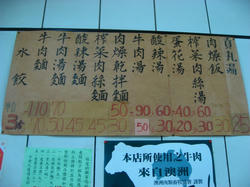 肉燥飯
榨菜肉絲湯
蛋花湯
酸辣湯
牛肉湯
肉燥乾拌麵
榨菜肉絲麵
酸辣湯麵
牛肉湯麵
牛肉麵
水餃
110 70 50 90 60 40 60
50 45 45 50 30 20 30
本店所使用之牛肉
來自澳洲